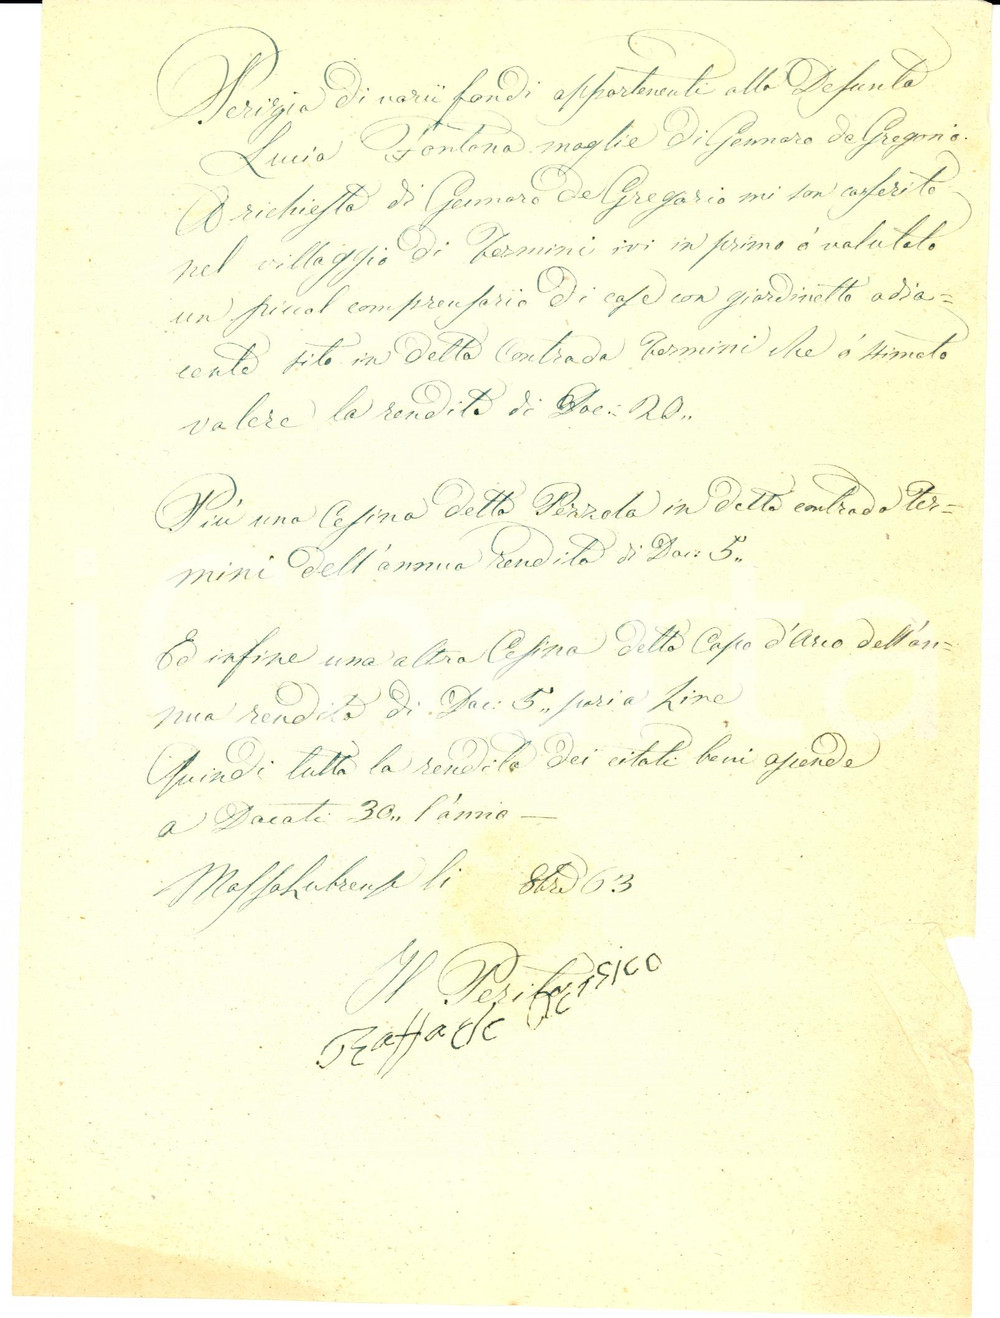 Perizia di varii fondi appartenenti alla Defunta
Lucia Fontana moglie di Gennaro de Gregorio.
A richiesta di Gennaro de Gregorio mi son conferito
nel villaggio di Termini ivi in primo ó valutato
un piccol comprensorio di case con giardinetto adia=
cente sito in detta Contrada Termini che ó stimato
valere la rendita di Doc: 20,,
Piu' una Cesina detta Pezzola in detta contrada Ter=
mini dell'annua rendita di Duc: 5,,
Ed infine una altra Cesina detta Capo d'Arco dell'an=
nua rendita di Duc: 5,,
Quindi tutta la rendita dei citati beni ascende
a Ducati 30,, l'anno —
MassaLubrense li 8bre 63
Il Perito
Raffaele